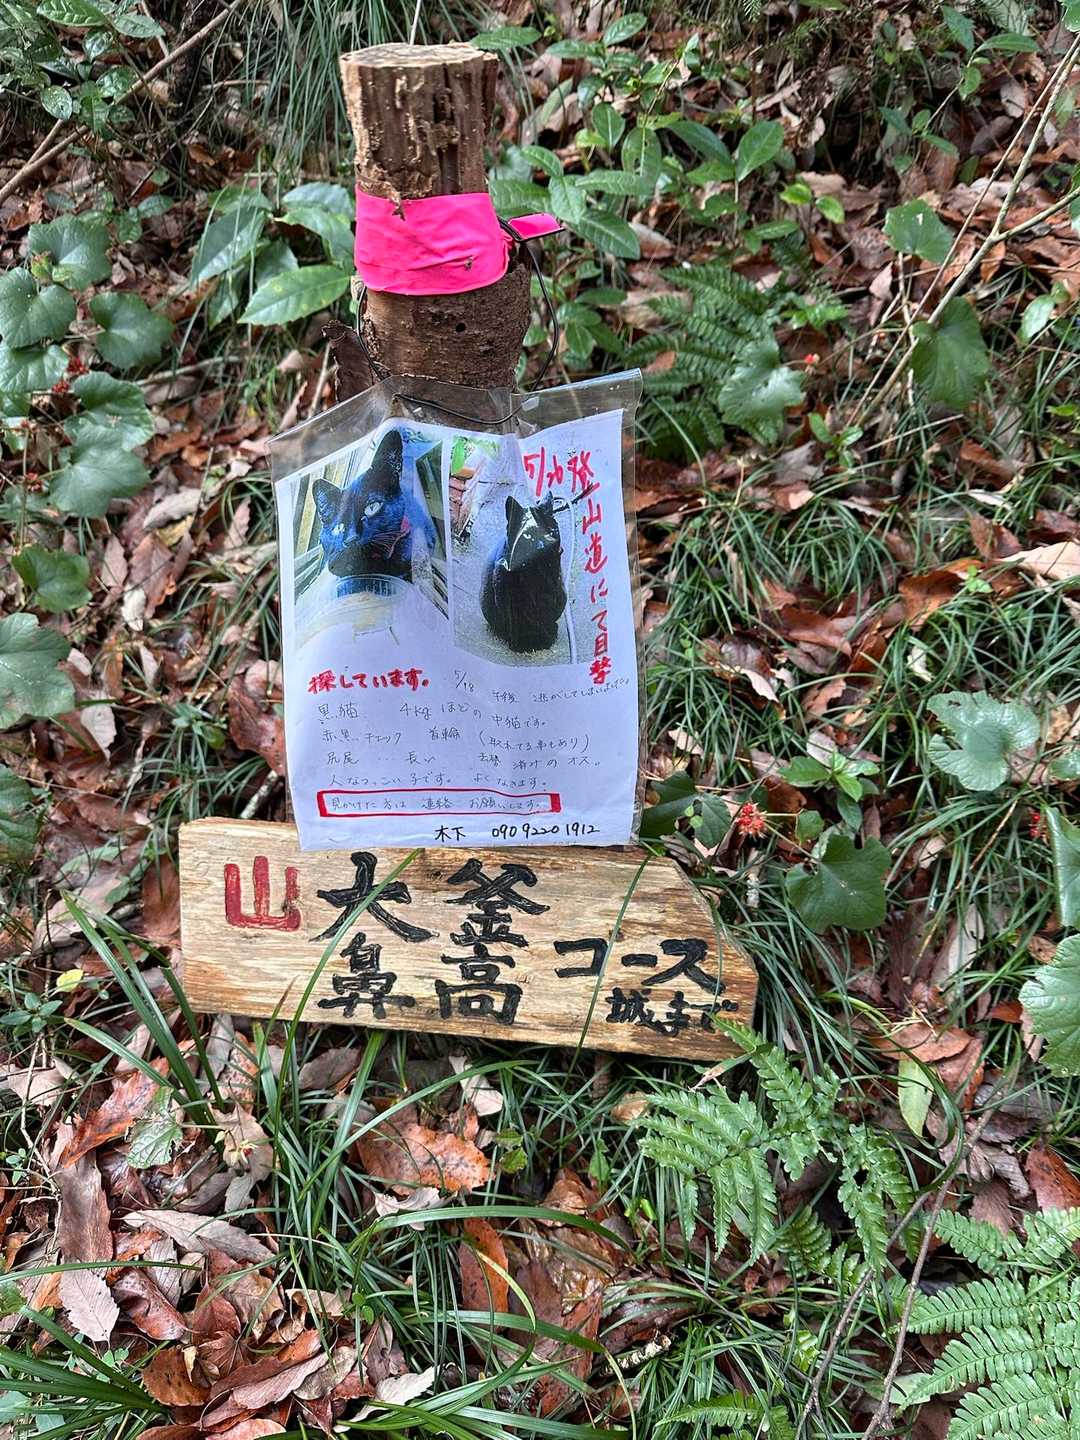 5/20 登山道にて目撃
探しています。 5/18 午後 逃がしてしまいました。
黒猫 4kgほどの中猫です。
赤黒チェック 首輪 (取れてる事もあり)
尻尾…長い 去勢済みのオス。
人なつっこい子です。 よくなきます。
見かけた方は 連絡 お願いします。
木下 090 9220 1912
山 大鼻 釜高 コース
城まで